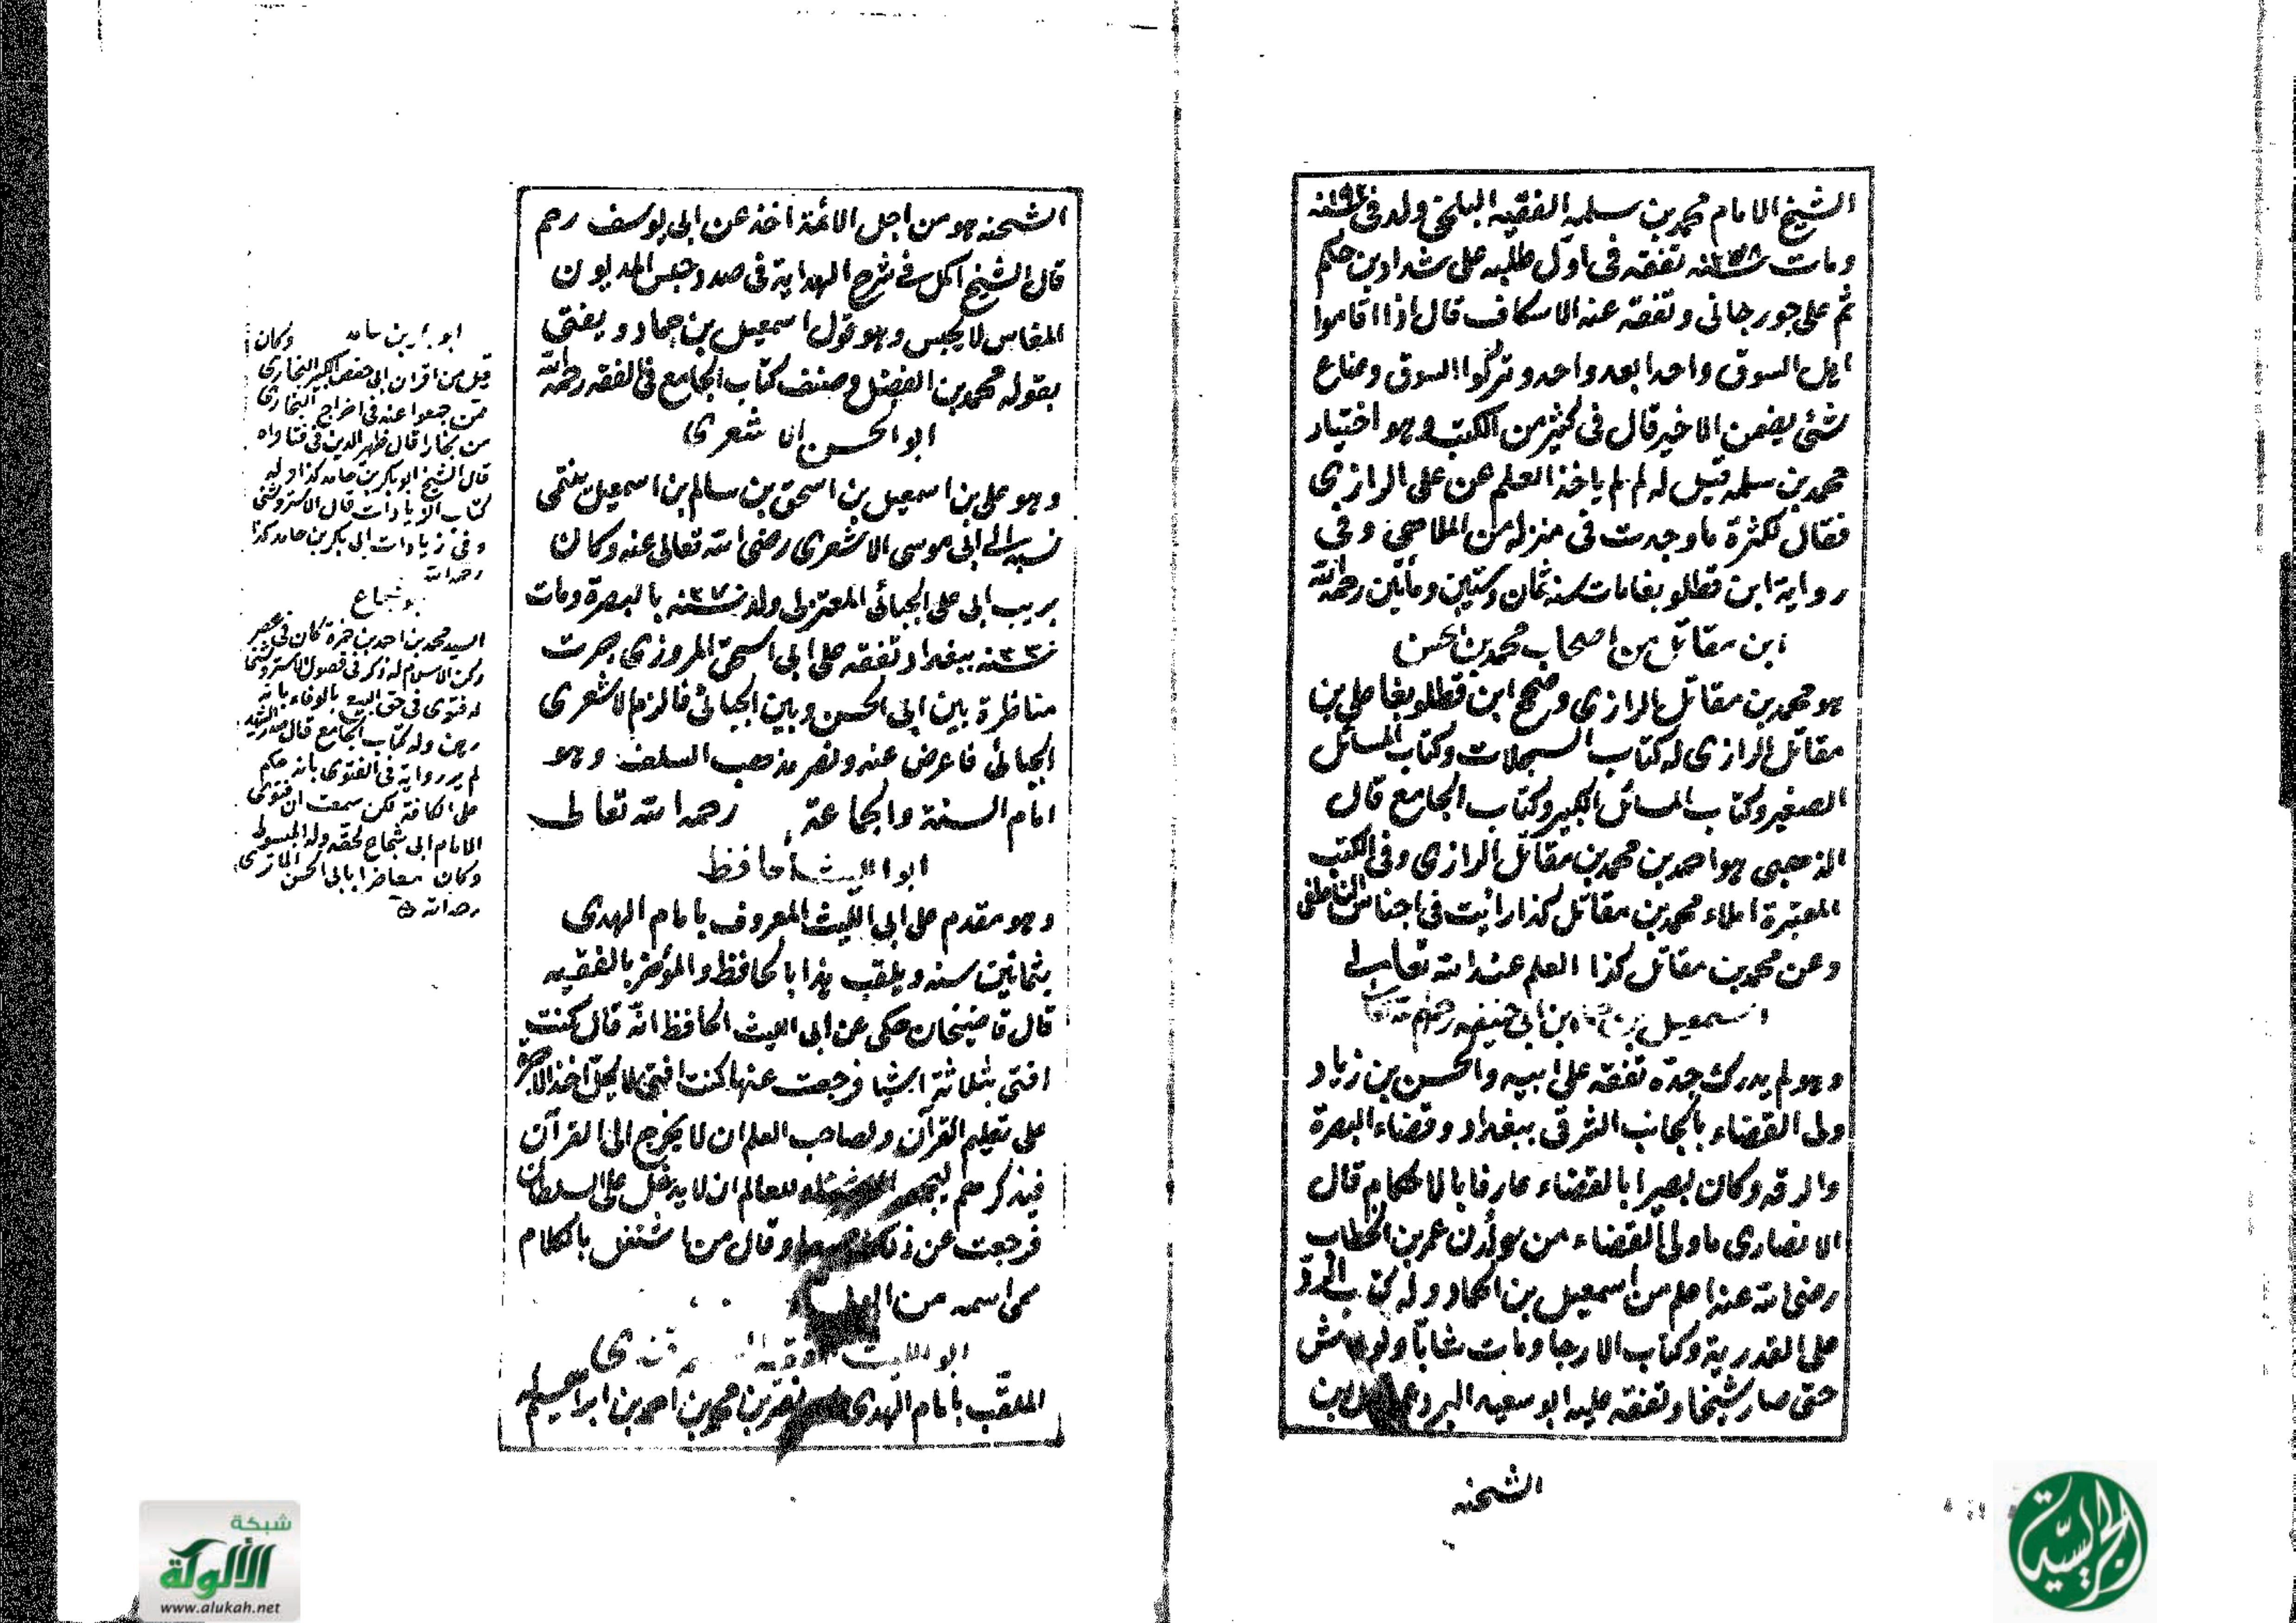 الشيخ الامام محمد بن سلمه الفقيه البلخى ولد فى ١٩٢ سنه
ومات ٢٧٨ سنه تفقه فى اول طلبه على شداد بن حكم
ثم على جورجانى وتفقه عنه الاسكاف قال اذا اقاموا
اهل السوق واحدا بعد واحد وتركوا السوق وضاع
شئ يضمن الاخير قال فى كثير من الكتب وهو اختيار
محمد بن سلمه قيل له لم لم ياخذ العلم عن على الرازى
فقال لكثرة ما وجدت فى منزله من الملاهى وفى
رواية ابن قطلوبغا مات سنه ثمان وستين ومأتين رحمه الله
ابن مقاتل من اصحاب محمد بن الحسن
هو محمد بن مقاتل الرازى وصحح ابن قطلوبغا على بن
مقاتل الرازى له كتاب السجلات وكتاب المسائل
الصغير وكتاب المسائل الكبير وكتاب الجامع قال
الذهبى هو احمد بن محمد بن مقاتل الرازى وفى الكتب
المعتبرة املاء محمد بن مقاتل كذا رائيت فى اجناس الناطفى
وعن محمد بن مقاتل كذا العلم عند الله تعالى
اسمعيل بن حماد ابن ابى حنيفه رحمهم الله تعالى
وهو لم يدرك جده تفقه على ابيه والحسن بن زياد
ولى القضاء بالجانب الشرقى ببغداد وقضاء البصرة
والرقه وكان بصيرا بالقضاء عارفا بالاحكام قال
الانصارى ما ولى القضاء من لدن عمر بن الخطاب
رضى الله عنه اعلم من اسمعيل بن الحماد وله كتاب الرد
على القدرية وكتاب الارجا ومات شابا ولو عاش
حتى صار شيخا وتفقه عليه ابو سعيد البردعى بن
الشحنه
الشحنه هو من اجل الائمة اخذ عن ابى يوسف رحم
قال الشيخ اكمل فى شرح الهداية فى صدد حبس المديون
المفلس لا يحبس وهو قول اسمعيل بن حماد ويفتى
بقوله محمد بن الفضل وصنف كتاب الجامع فى الفقه رحمه الله
ابو الحسن الاشعرى
وهو على بن اسمعيل بن اسحق بن سالم بن اسمعيل ينتمى
نسبه الى ابى موسى الاشعرى رضى الله تعالى عنه وكان
بريب ابى على الجبائى المعتزلى ولد ٢٧٠ سنه بالبصرة ومات
٣٣٠ سنه ببغداد وتفقه على ابى اسحق المروزى جرت
مناظرة بين ابى الحسن وبين الجبائى فالزم الاشعرى
الجبائى فاعرض عنه ونصر مذهب السلف وهو
امام السنة والجماعة رحمه الله تعالى
ابو الليث الحافظ
وهو مقدم على ابى الليث المعروف بامام الهدى
بثمانين سنه ويلقب هذا بالحافظ والمؤخر بالفقيه
قال قاضيخان حكى عن ابى الليث الحافظ انه قال كنت
افتى بثلاثة اشيا فرجعت عنها كنت افتى لا يحل اخذ الاجر
على تعليم القرآن ولصاحب العلم ان لا يخرج الى القرآن
فيذكرهم للعالم ان لا يدخل على السلطان
فرجعت عن ذلك وقال من اشتغل بالكلام
محى اسمه من العلماء
ابو الليث الفقيه السمرقندى
الملقب بامام الهدى نصر بن محمد بن احمد بن ابراهيم
ابو بكر بن حامد وكان
قيل من اقران ابى حفص الكبير البخارى
ممن جمعوا عنه فى اخراج البخارى
من بخارا قال ظهير الدين فى فتاواه
قال الشيخ ابو بكر بن حامد كذا وله
كتاب الزيادات قال الاستروشنى
وفى زيادات ابى بكر بن حامد كذا
رحمه الله
ابو شجاع
السيد محمد بن احمد بن حمزة كان فى عصر
ركن الاسلام له ذكر فى فصول الاستروشنى
له فتوى فى حق البيع بالوفاء بانه
رهن وله كتاب الجامع قال
لم ير رواية فى الفتوى بانه حكم
على الكافة لكن سمعت ان فتوى
الامام ابى شجاع لحقه وله المبسوط
وكان معاصرا بابى الحسن
رحمه الله
شبكة
الألوكة
www.alukah.net